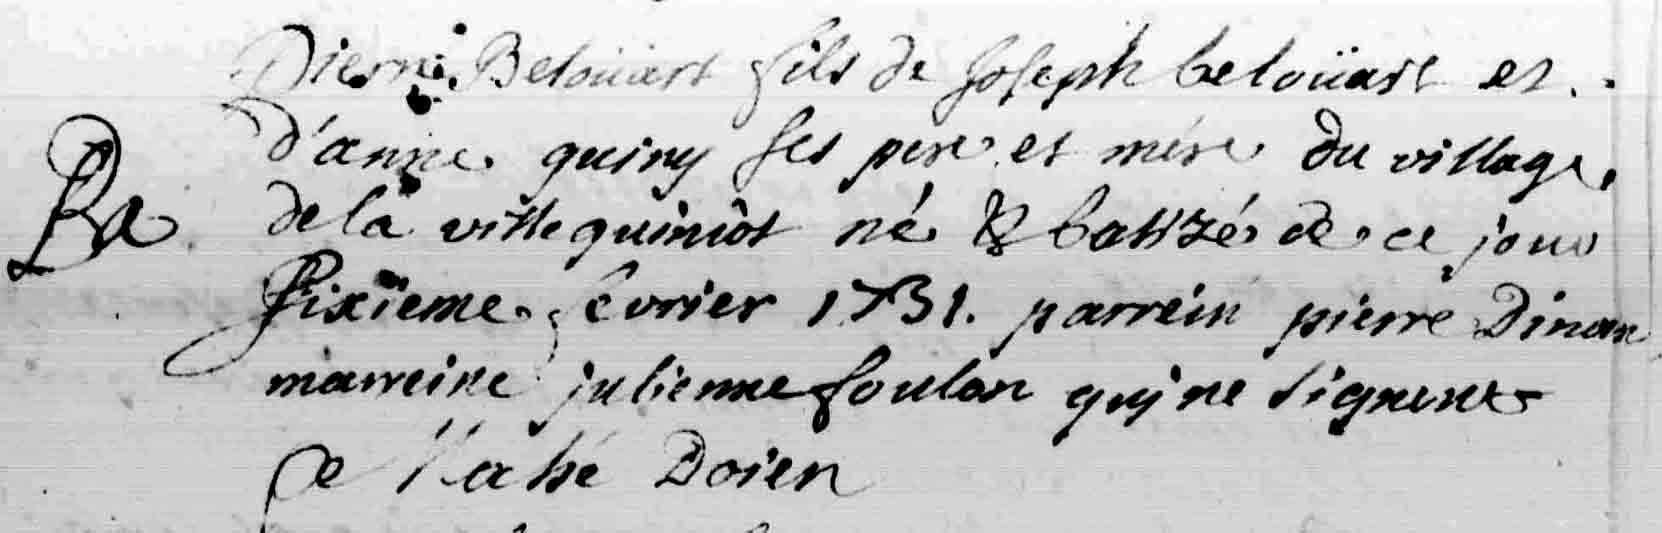 Pierre Beloüart fils de Joseph beloüart et
d'anne quiny ses pere et mére du village
Ba
de la ville quiniot né & batizé de ce jour
sixieme fevrier 1731. parrein pierre Dinan
marreine julienne foulon qui ne signent